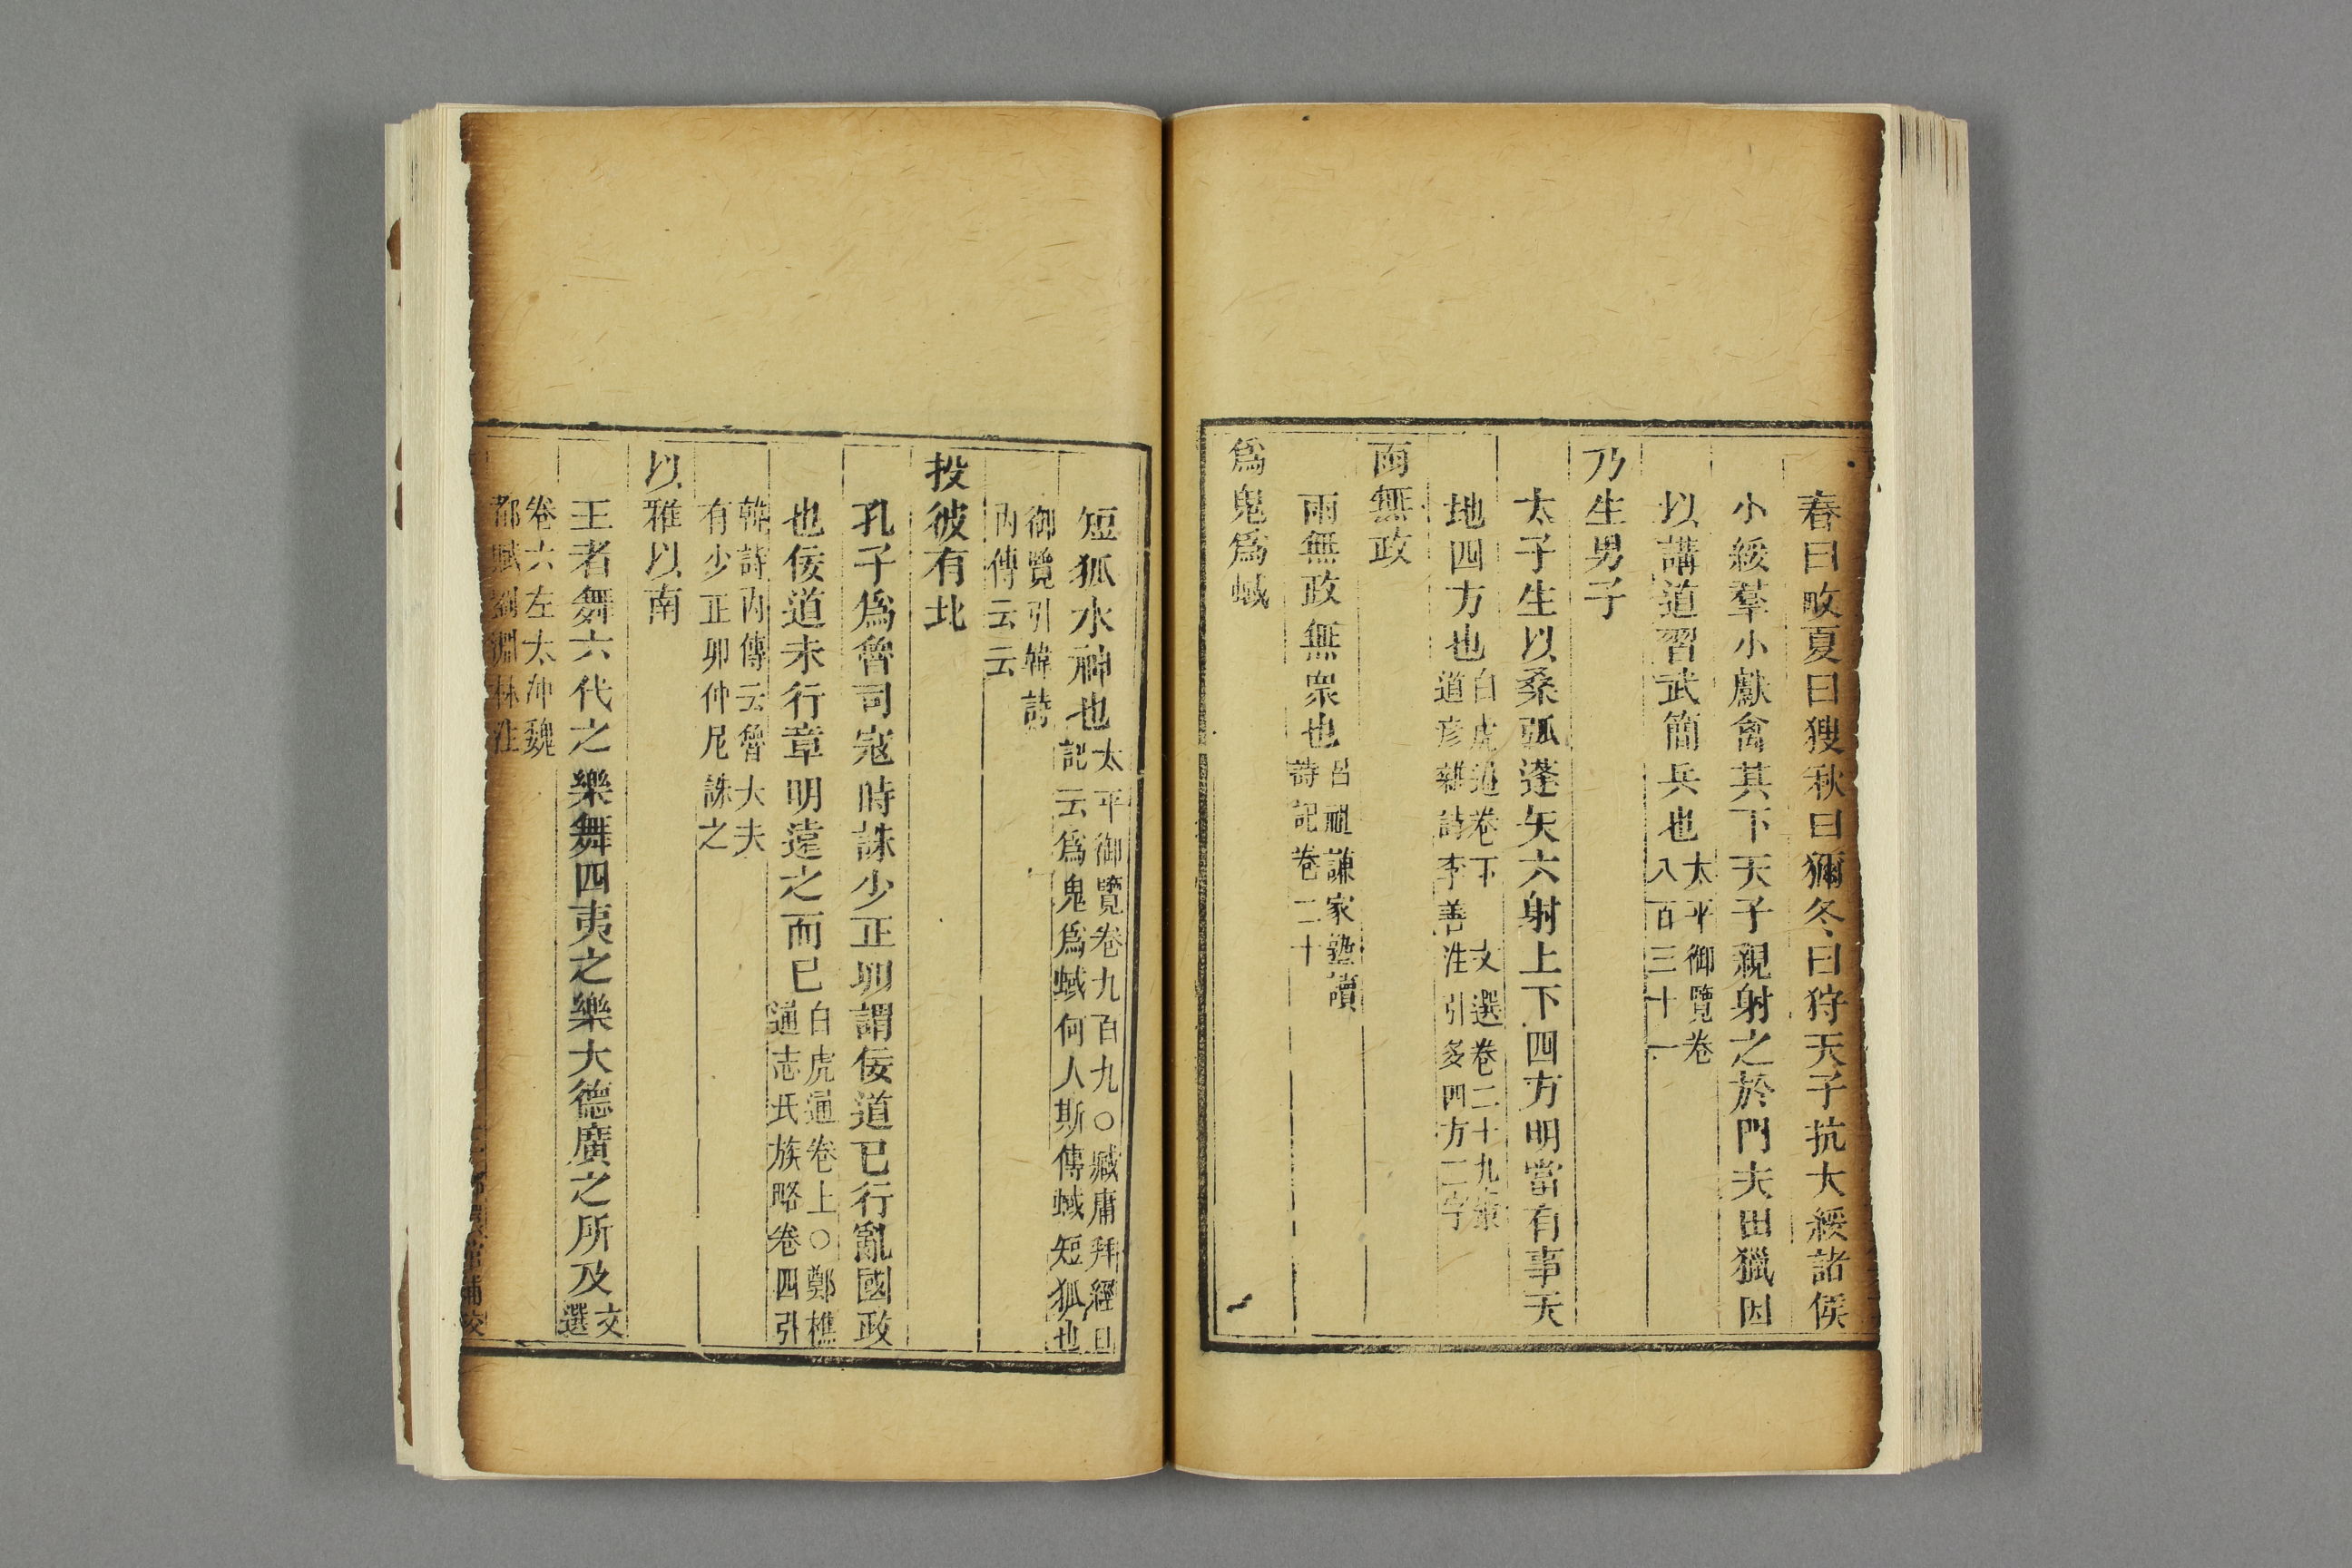 春曰畋夏曰獀秋曰獮冬曰狩天子抗大綏諸侯
小綏羣小獻禽其下天子親射之於門夫田獵因
以講道習武簡兵也太平御覽卷
八百三十一
乃生男子
太子生以桑弧蓬矢六射上下四方明當有事天
地四方也白虎通卷下 文選卷二十九束
道彥雜詩李善注引多四方二字
雨無政
雨無政無衆也呂祖謙家塾讀
詩記卷二十
爲鬼爲蜮
短狐水神也太平御覽卷九百九○臧庸拜經日
記云爲鬼爲蜮何人斯傳蜮短狐也
御覽引韓詩
內傳云云
投彼有北
孔子爲魯司寇時誅少正卯謂佞道已行亂國政
也佞道未行章明遠之而已白虎通卷上○鄭樵
通志氏族略卷四引
韓詩內傳云魯大夫
有少正卯仲尼誅之
以雅以南
王者舞六代之樂舞四夷之樂大德廣之所及文
選
卷六左太沖魏
都賦劉淵林注
補校